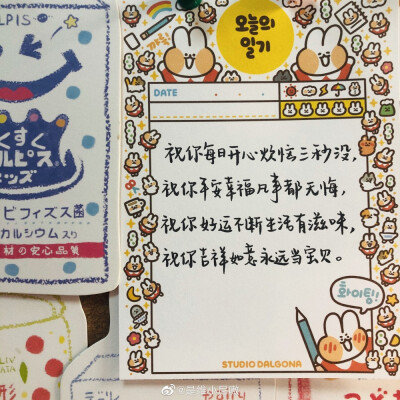 오늘의
일기
DATE
祝你每日开心烦恼三秒没,
祝你平安幸福凡事都无悔,
祝你好运不断生活有滋味,
祝你吉祥如意永远当宝贝。
화이팅!
STUDIO DALGONA
LPIS
くすく
ルピス
キッズ
ビフィズス菌
カルシウム入り
材の安心品質